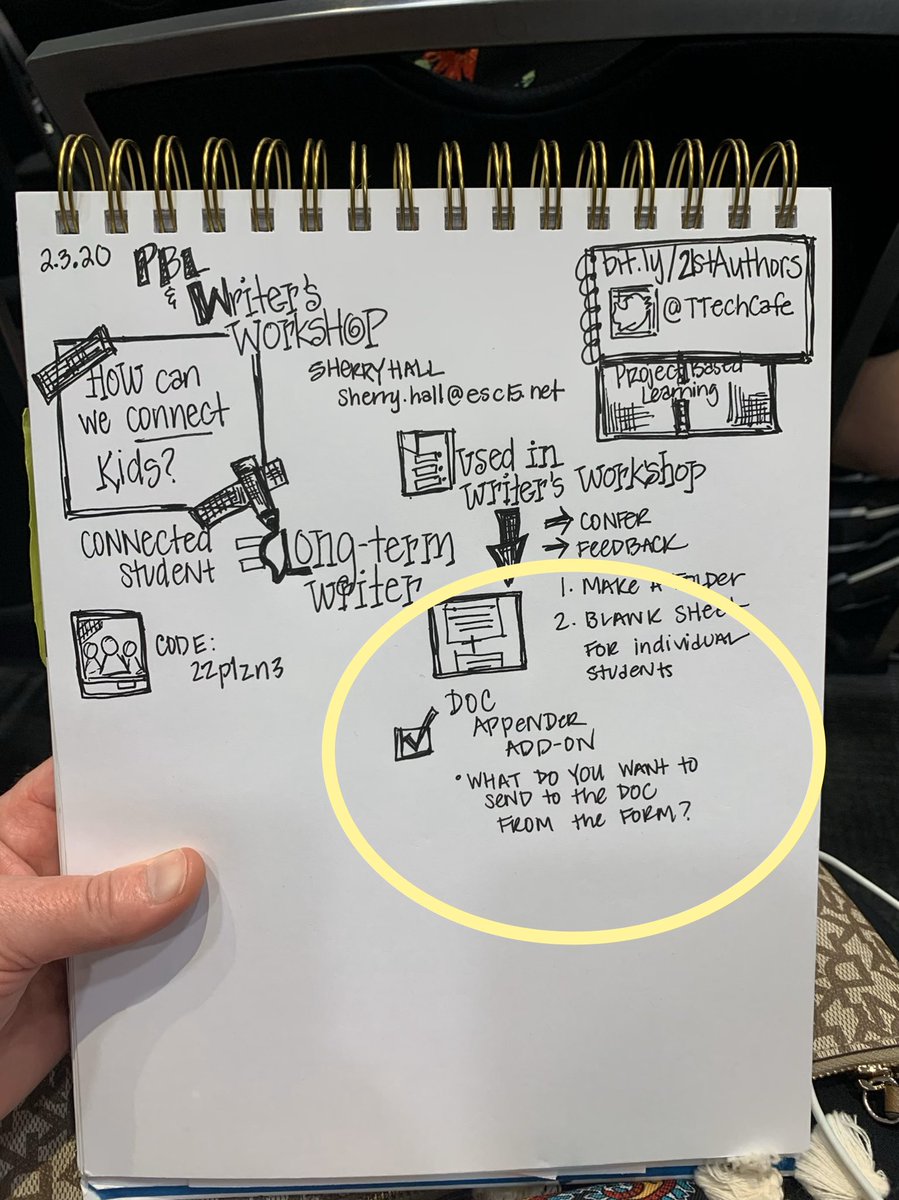 2.3.20
PBL
& Writer's
WORKSHOP
SHERRY HALL
sherry.hall@esc15.net
bit.ly/21stAuthors
@TTechCafe
Project Based
Learning
HOW can
we connect
Kids?
CONNECTED
STUDENT
Long-term
writer
CODE:
22plzn3
used in
writer's workshop
CONFER
FEEDBACK
1. MAKE A FOLDER
2. BLANK SHEET
FOR individual
students
DOC
APPENDER
ADD-ON
• WHAT DO YOU WANT TO
SEND to the DOC
FROM the FORM?